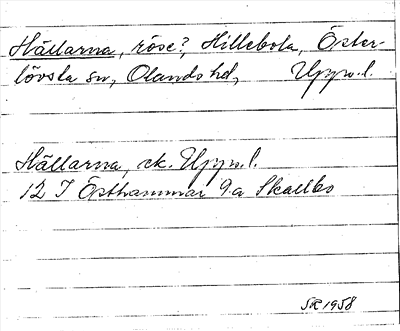 Hällarna, röse?, Hillebola, Öster-
lövsta sn, Olands hd, Upps.l.
Hällarna, ek. Upps.l.
12 I Östhammar 9a Skallbo
SR 1958